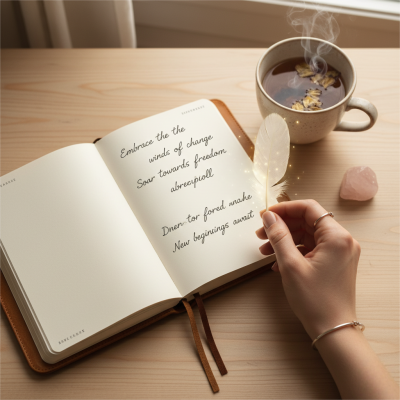 Embrace the the
winds of change
Soar towards freedom
abreypioll
Dnen tor fored wnahe
New beginings await